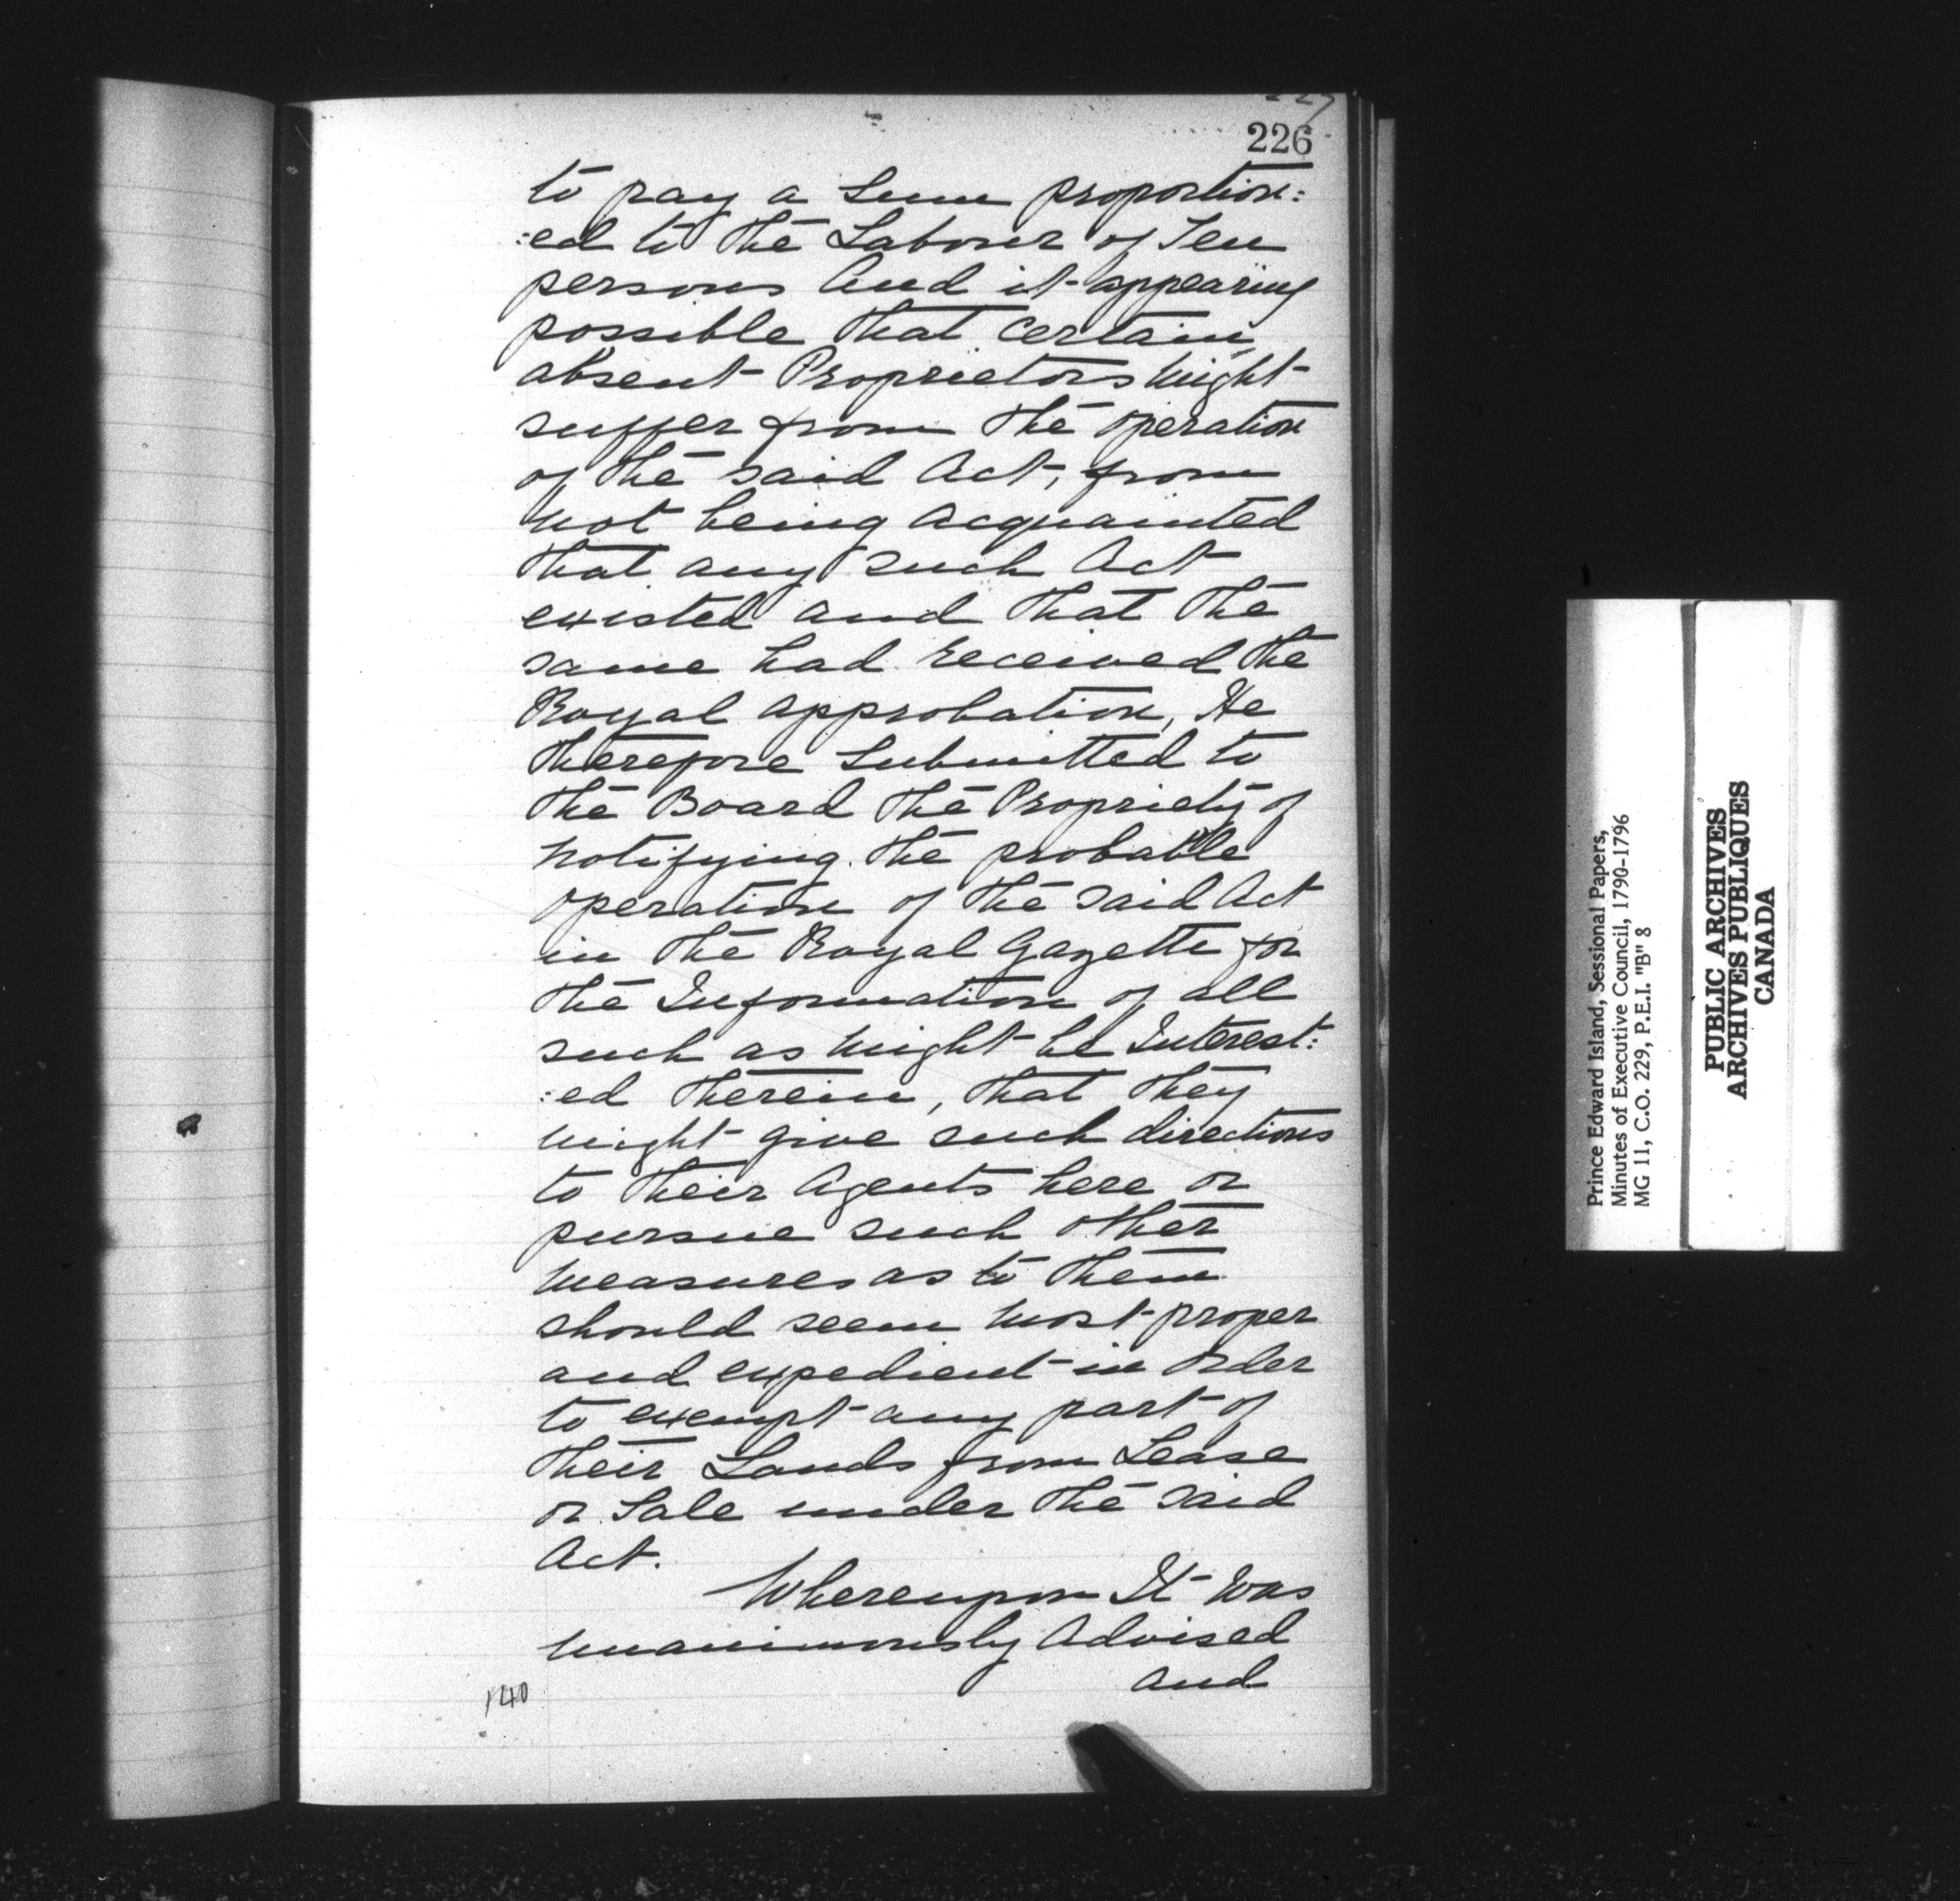 227
226
to pay a Sum proportion:
:ed to the Labour of Ten
persons and it appearing
possible that certain
absent Proprietors might
suffer from the operation
of the said Act, from
not being acquainted
that any such Act
existed and that the
same had received the
Royal approbation, He
therefore Submitted to
the Board the Propriety of
notifying the probable
operation of the said Act
in the Royal Gazette for
the Information of all
such as might be Interest:
:ed therein, that they
might give such directions
to their Agents here or
pursue such other
measures as to them
should seem most proper
and expedient in order
to exempt any part of
their Lands from Lease
or Sale under the said
Act.
Whereupon It was
unanimously Advised
and
140
Prince Edward Island, Sessional Papers,
Minutes of Executive Council, 1790-1796
MG 11, C.O. 229, P.E.I. "B" 8
PUBLIC ARCHIVES
ARCHIVES PUBLIQUES
CANADA